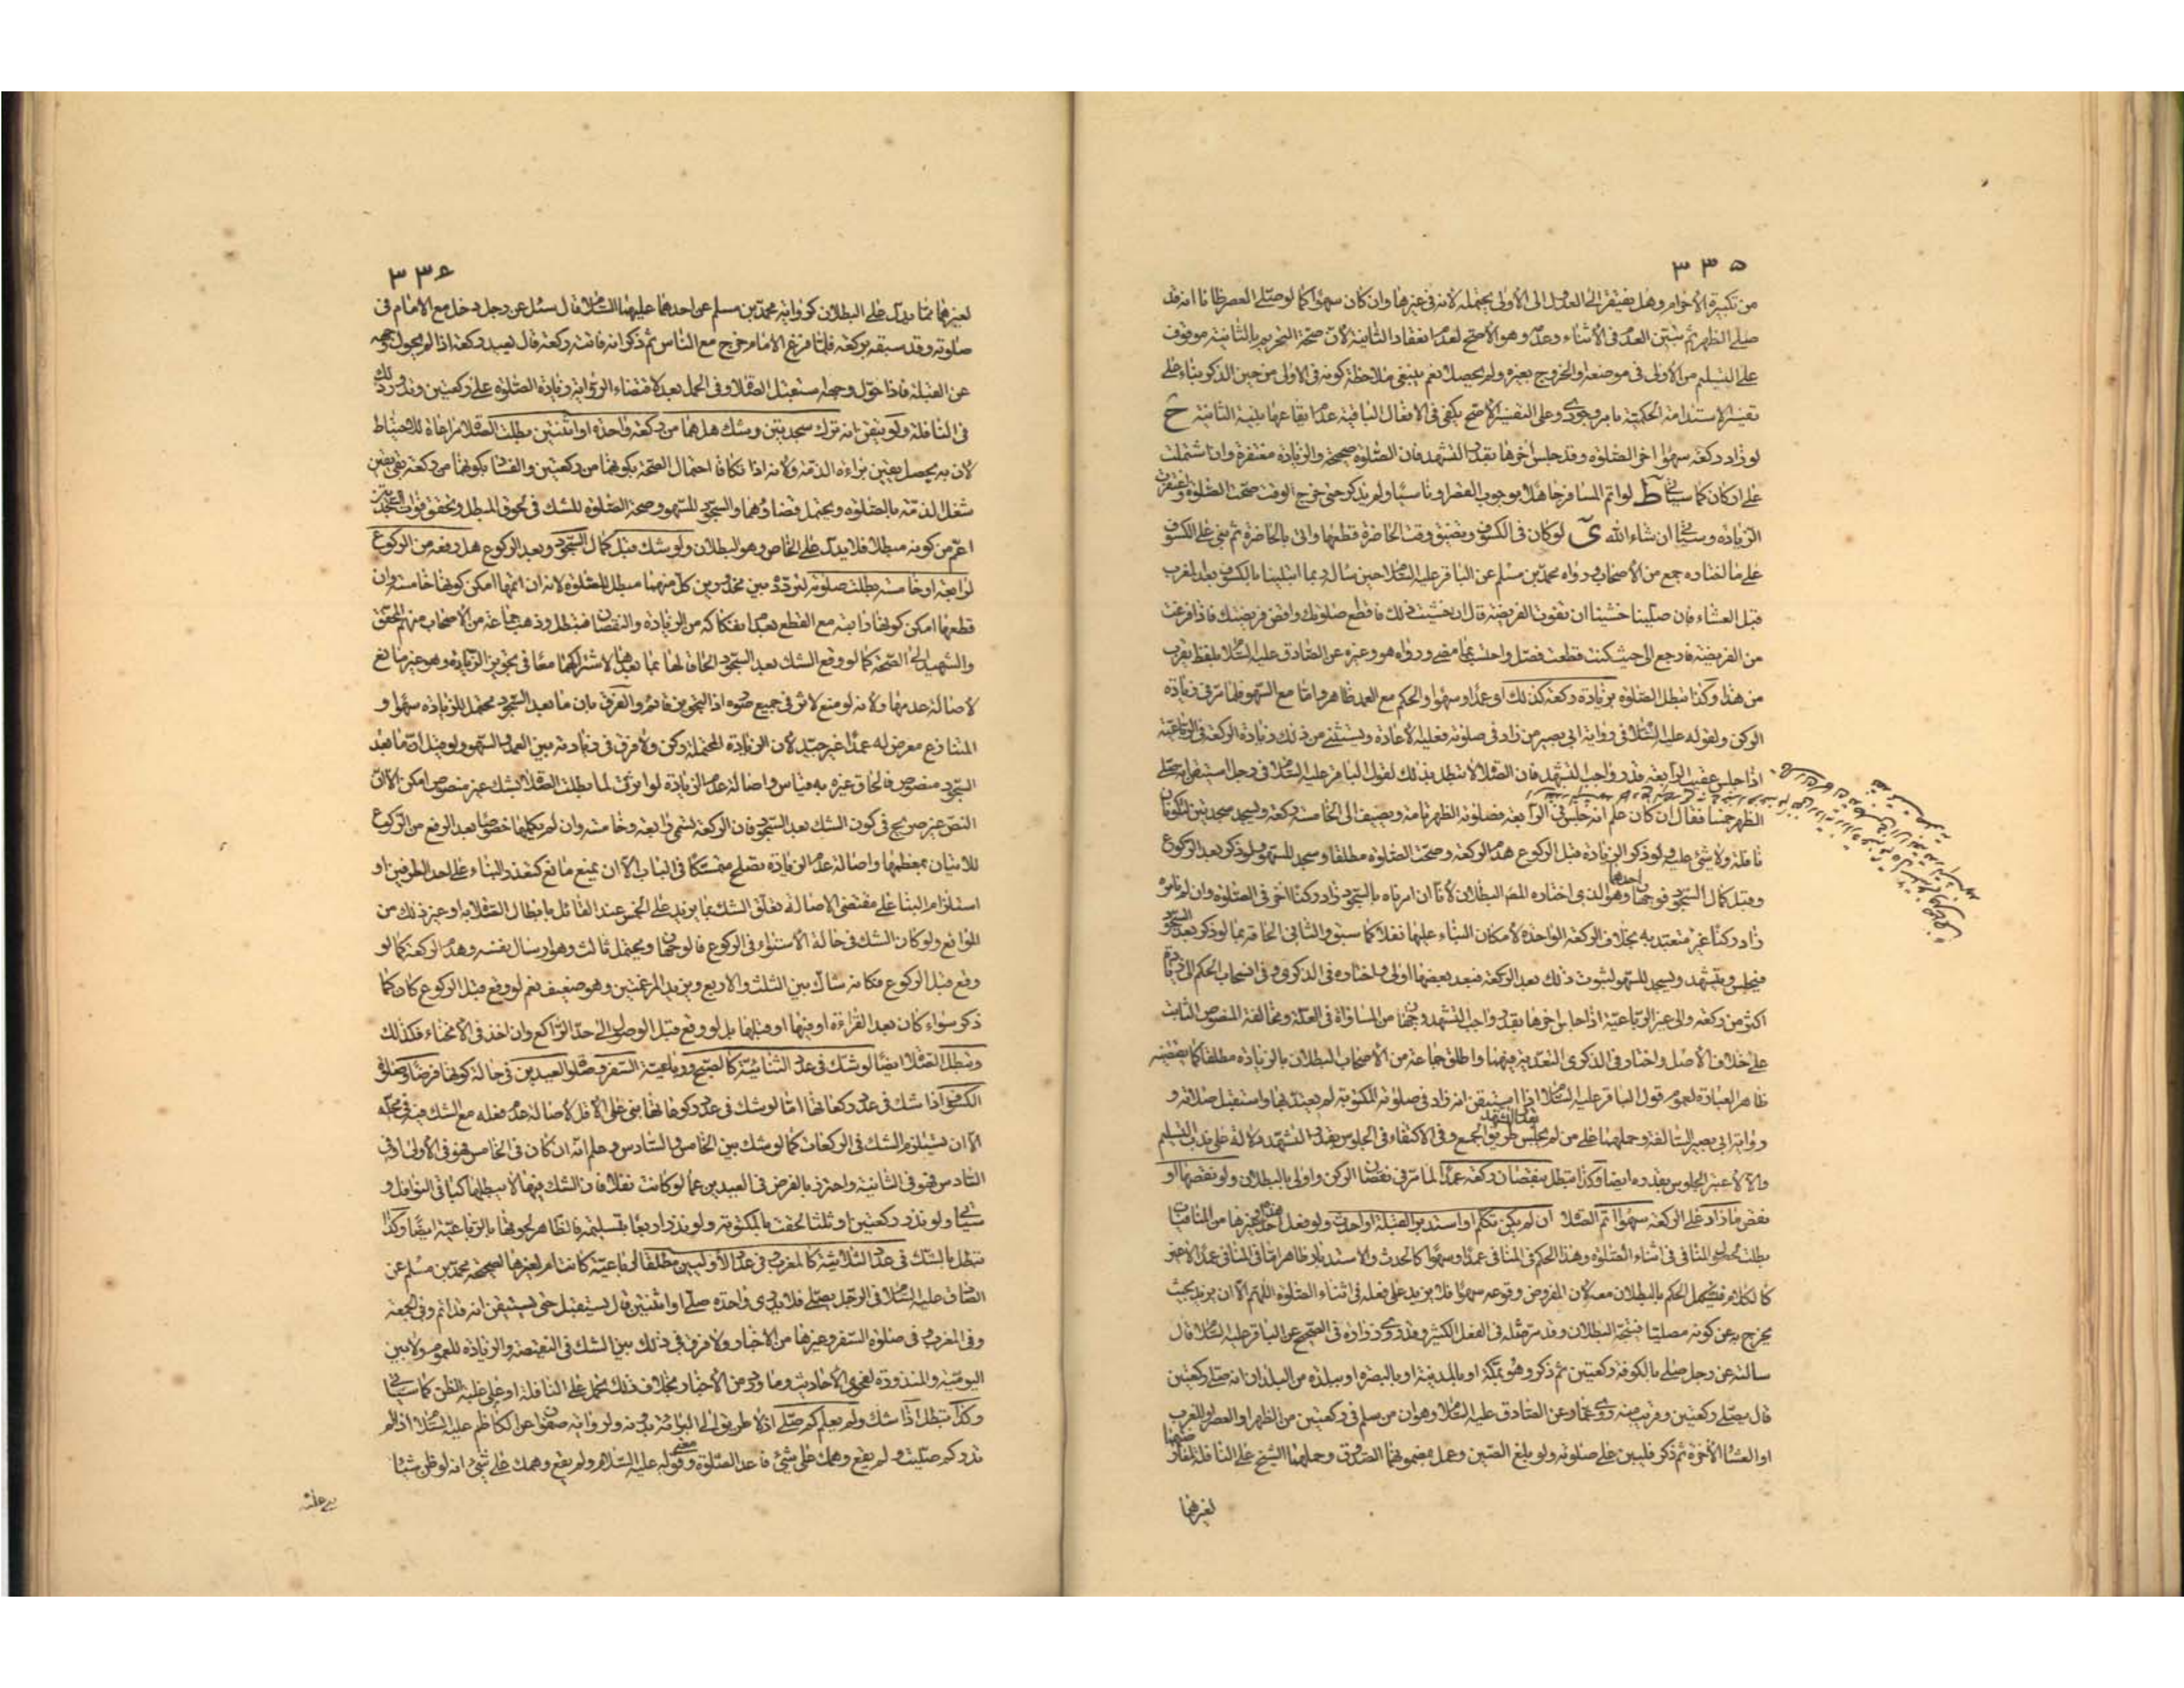 ٣٣٥
من تكبيرة الاحرام وهل يفتقر الى العدول الى الأولى يحتمله لانه في غيرها وان كان سهوا كما لو صلى العصر ظانا انه قد
صلى الظهر ثم تبين العدم في الأثناء وعدمه وهو الأصح لعدم انعقاد الثانية لأن صحة التحريم بالثانية موقوف
على التسليم من الأولى في موضعه او الخروج بغيره ولم يحصلا نعم ينبغي ملاحظة كونه في الاولى من حين الذكر بناء على
تفسير الاستدامة الحكمية بامر وجودي وعلى التفسير الأصح يكفي في الافعال الباقية عدم ايقاعها بنية الثانية ح
لو زاد ركعة سهوا اخر الصلوة وقد جلس اخرها بقدر التشهد فان الصلوة صحيحة والزيادة مغتفرة وان اشتملت
على اركان كما سيأتي ط لو اتم المسافر جاهلا بوجوب القصر او ناسيا ولم يذكر حتى خرج الوقت صحت الصلوة واغتفرت
الزيادة وسيأتي ان شاء الله ي لو كان في الكسوف وتضيق وقت الحاضرة قطعها واتى بالحاضرة ثم بنى على الكسوف
على ما اختاره جمع من الأصحاب ورواه محمد بن مسلم عن الباقر عليه السلام حين سأله ربما ابتلينا بالكسوف بعد المغرب
قبل العشاء فان صلينا خشينا ان تفوت الفريضة قال ان خشيت ذلك فاقطع صلوتك واقض فريضتك فاذا فرغت
من الفريضة فارجع الى حيث كنت قطعت فصل واحتسب بما مضى ورواه هو وغيره عن الصادق عليه السلام بلفظ يقرب
من هذا وكذا تبطل الصلوة بزيادة ركعة كذلك اي عمدا وسهوا والحكم مع العمد ظاهر واما مع السهو فلما مر في زيادة
الركن ولقوله عليه السلام في رواية ابي بصير من زاد في صلوته فعليه الاعادة ويستثنى من ذلك زيادة الركعة في الرباعية
اذا جلس عقيب الرابعة قدر واجب التشهد فان الصلاة لا تبطل بذلك لقول الباقر عليه السلام في رجل استيقن انه صلى
الظهر خمسا فقال ان كان علم انه جلس في الرابعة فصلوته الظهر تامة ويضيف الى الخامسة ركعة ويسجد سجدتين فتكونان
نافلة ولا شئ عليه ولو ذكر الزيادة قبل الركوع هدم الركعة وصحت الصلوة مطلقا وسجد للسهو ولو ذكر بعد الركوع
وقبل كمال السجود فوجهان احدهما وهو الذي اختاره المص البطلان لأنا ان امرناه بالسجود زاد ركنا اخر في الصلوة وان لم نامره
زاد ركنا غير متعبد به بخلاف الركعة الواحدة لامكان البناء عليها نفلا كما سبق والثاني الحاقه بما لو ذكر بعد السجود
فيجلس ويتشهد ويسجد للسهو لثبوت ذلك بعد الركعة فبعد بعضها اولى واختاره في الذكرى وفي انسحاب الحكم الى زيادة
اكثر من ركعة والى غير الرباعية اذا جلس اخرها بقدر واجب التشهد وجهان من المساواة في العلة ومخالفة المنصوص الثابت
على خلاف الاصل واختار في الذكرى التعدية فيهما واطلق جماعة من الأصحاب البطلان بالزيادة مطلقا كما يقتضيه
ظاهر العبادة لعموم قول الباقر عليه السلام اذا استيقن انه زاد في صلوته المكتوبة لم يعتد بها واستقبل صلاته و
رواية ابي بصير السالفة وحملهما على من لم يجلس بقدر التشهد طريق الجمع وفي الاكتفاء في الجلوس بقدر التشهد دلالة على ندب التسليم
والا لاعتبر الجلوس بقدره ايضا وكذا تبطل بنقصان ركعة عمدا لما مر في نقصان الركن واولى بالبطلان ولو نقصها او
نقص ما زاد على الركعة سهوا اتم الصلاة ان لم يكن تكلم او استدبر القبلة او احدث ولو فعل احد هذه او غيرها من المنافيات
بطلت لحصول المنافي في اثناء الصلوة وهذا الحكم في المنافي عمدا وسهوا كالحدث والاستدبار ظاهر اما في المنافي عمدا لا غير
كالكلام فيشكل الحكم بالبطلان معه لان المفروض وقوعه سهوا فلا يزيد على فعله في اثناء الصلوة اللهم الا ان يزيد بحيث
يخرج به عن كونه مصليا فيتجه البطلان وقد مر مثله في الفعل الكثير وقد روى زرارة في الصحيح عن الباقر عليه السلام قال
سالته عن رجل صلى بالكوفة ركعتين ثم ذكر وهو بمكة او بالمدينة او بالبصرة او ببلدة من البلدان انه صلى ركعتين
قال يصلي ركعتين وقريب منه روى عمار عن الصادق عليه السلام وهو ان من سلم في ركعتين من الظهر او العصر او المغرب
او العشاء الآخرة ثم ذكر فليبن على صلوته ولو بلغ الصين وعمل بمضمونهما الصدوق وحملهما الشيخ على النافلة
لغيرهما
٣٣٦
لغيرهما مما يدل على البطلان كرواية محمد بن مسلم عن احدهما عليهما السلام قال سئل عن رجل دخل مع الامام في
صلوته وقد سبقه بركعة فلما فرغ الامام خرج مع الناس ثم ذكر انه فاتته ركعة قال يعيد ركعة اذا لم يحول وجهه
عن القبلة فاذا حول وجهه استقبل الصلاة وفي الحمل بعد لاقتضاء الرواية زيادة الصلوة على ركعتين وندور ذلك
في النافلة ولو تيقن انه ترك سجدتين وشك هل هما من ركعة واحدة او اثنتين بطلت الصلاة مراعاة للاحتياط
لأن به يحصل يقين براءة الذمة ولأنه اذا تكافا احتمال الصحة بكونهما من ركعتين والفساد بكونهما من ركعة بقى يقين
شغل الذمة بالصلوة ويحتمل قضاؤهما والسجود للسهو وصحة الصلوة للشك في لحوق المبطل وتحقق فوات السجدتين
اعم من كونه مبطلا فلا يدل على الخاص وهو البطلان ولو شك قبل كمال السجود وبعد الركوع هل رفعه من الركوع
لرابعة او خامسة بطلت صلوته لتردده بين محذورين كل منهما مبطل للصلوة لانه ان اتمها امكن كونها خامسة وان
قطعها امكن كونها رابعة مع القطع بعدم انفكاكه من الزيادة والنقصان فتبطل وذهب جماعة من الأصحاب منهم المحقق
والشهيد الى الصحة كما لو وقع الشك بعد السجود الحاقا لها بما بعدها لاشتراكهما معا في تجويز الزيادة وهو غير مانع
لاصالة عدمها ولأنه لو منع لاثر في جميع صوره اذ التجويز قائم والفرق بان ما بعد السجود محتمل للزيادة سهوا و
المتنازع معرض له عمدا غير جيد لأن الزيادة المحتملة ركن ولا فرق في زيادته بين العمد والسهو ولو قيل ان ما بعد
السجود منصوص فالحاق غيره به قياس واصالة عدم الزيادة لو اثرت لما بطلت الصلاة بشك غير منصوص امكن لأن
النص غير صريح في كون الشك بعد السجود فان الركعة تسمى رابعة وخامسة وان لم يكملها خصوصا بعد الرفع من الركوع
للاتيان بمعظمها واصالة عدم الزيادة تصلح متمسكا في الباب الا ان يمنع مانع كتعذر البناء على احد الطرفين او
استلزام البناء على مقتضى الاصالة تعلق الشك بما يزيد على الخمس عند القائل بابطال الصلاة به او غير ذلك من
الموانع ولو كان الشك في حالة الاستواء في الركوع فالوجهان ويحتمل ثالث وهو ارسال نفسه وهدم الركعة كما لو
وقع قبل الركوع فكانه شاك بين الثلث والاربع ويزيد المرغمتين وهو ضعيف نعم لو وقع قبل الركوع كان كما
ذكر سواء كان بعد القراءة او فيها او قبلها بل لو وقع قبل الوصول الى حد الراكع وان اخذ في الانحناء فكذلك
وتبطل الصلاة ايضا لو شك في عدد الثنائية كالصبح ورباعية السفر وصلوة العيدين في حالة كونها فرضا وصلوة
الكسوف اذا شك في عدد ركعاتها اما لو شك في عدد ركوعاتها بنى على الاقل لأصالة عدم فعله مع الشك فيه في محله
الا ان يستلزم الشك في الركعات كما لو شك بين الخامس والسادس وعلم انه ان كان في الخامس فهو في الأولى او في
السادس فهو في الثانية واحترز بالفرض في العيدين عما لو كانت نفلا فان الشك فيها لا يبطلها كباقي النوافل و
سيأتي ولو نذر ركعتين او ثلثا لحقت بالمكتوبة ولو نذر اربعا بتسليمة فالظاهر لحوقها بالرباعية ايضا وكذا
تبطل بالشك في عدد الثلاثية كالمغرب وفي عدد الأوليين مطلقا اي رباعية كانتا ام لغيرها لصحيحة محمد بن مسلم عن
الصادق عليه السلام في الرجل يصلي فلا يدري واحدة صلى او اثنتين قال يستقبل حتى يستيقن انه قد اتم وفي الجمعة
وفي المغرب وفي صلوة السفر وغيرها من الأخبار ولا فرق في ذلك بين الشك في النقيصة والزيادة للعموم ولا بين
اليومية والمنذورة لفحوى الأحاديث وما ورد من الأخبار بخلاف ذلك يحمل على النافلة او على غلبة الظن كما سيأتي
وكذا تبطل اذا شك ولم يعلم كم صلى اذ لا طريق له الى البراءة بدونه ولرواية صفوان عن الكاظم عليه السلام اذا لم
تدر كم صليت ولم يقع وهمك على شئ فاعد الصلوة ومعنى قوله عليه السلام ولم يقع وهمك على شئ انه لو ظن شيئا